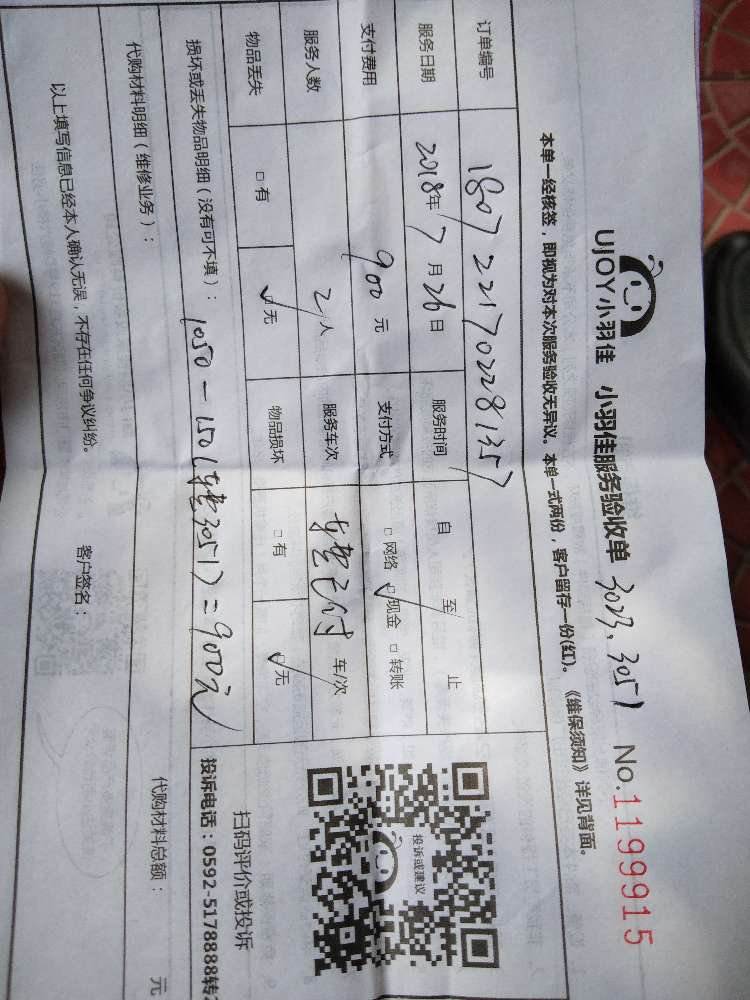 UJOY小羽佳 小羽佳服务验收单 3023、3051 No.1199915
本单一经核签，即视为对本次服务验收无异议。本单一式两份，客户留存一份(红)。《维保须知》详见背面。
订单编号 1807221702281357
服务日期 2018年7月26日 服务时间 自 至 止
支付费用 900元 支付方式 □网络 ☑现金 □转账
服务人数 2人 服务车次 车费已付 车/次
物品丢失 □有 ☑无 物品损坏 □有 ☑无
投诉或建议
扫码评价或投诉
投诉电话：0592-5178888转
损坏或丢失物品明细（没有可不填）：1050-150(车费3051)=900元
代购材料明细（维修业务）： 代购材料总额： 元
以上填写信息已经本人确认无误，不存在任何争议纠纷。 客户签名：